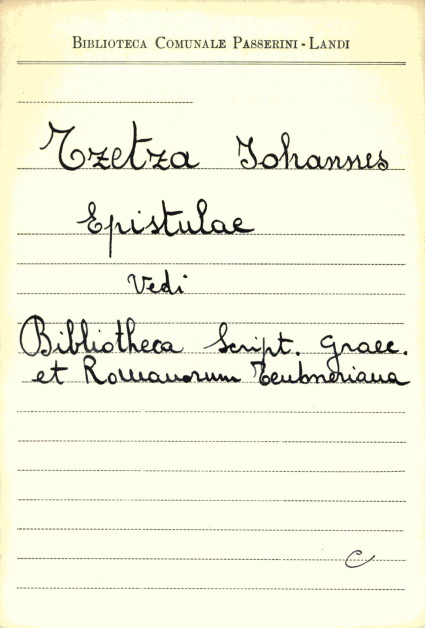 Biblioteca Comunale Passerini - Landi
Tzetza Johannes
Epistulae
Vedi
Bibliotheca Script. Graec.
et Romanorum Teubneriana
C